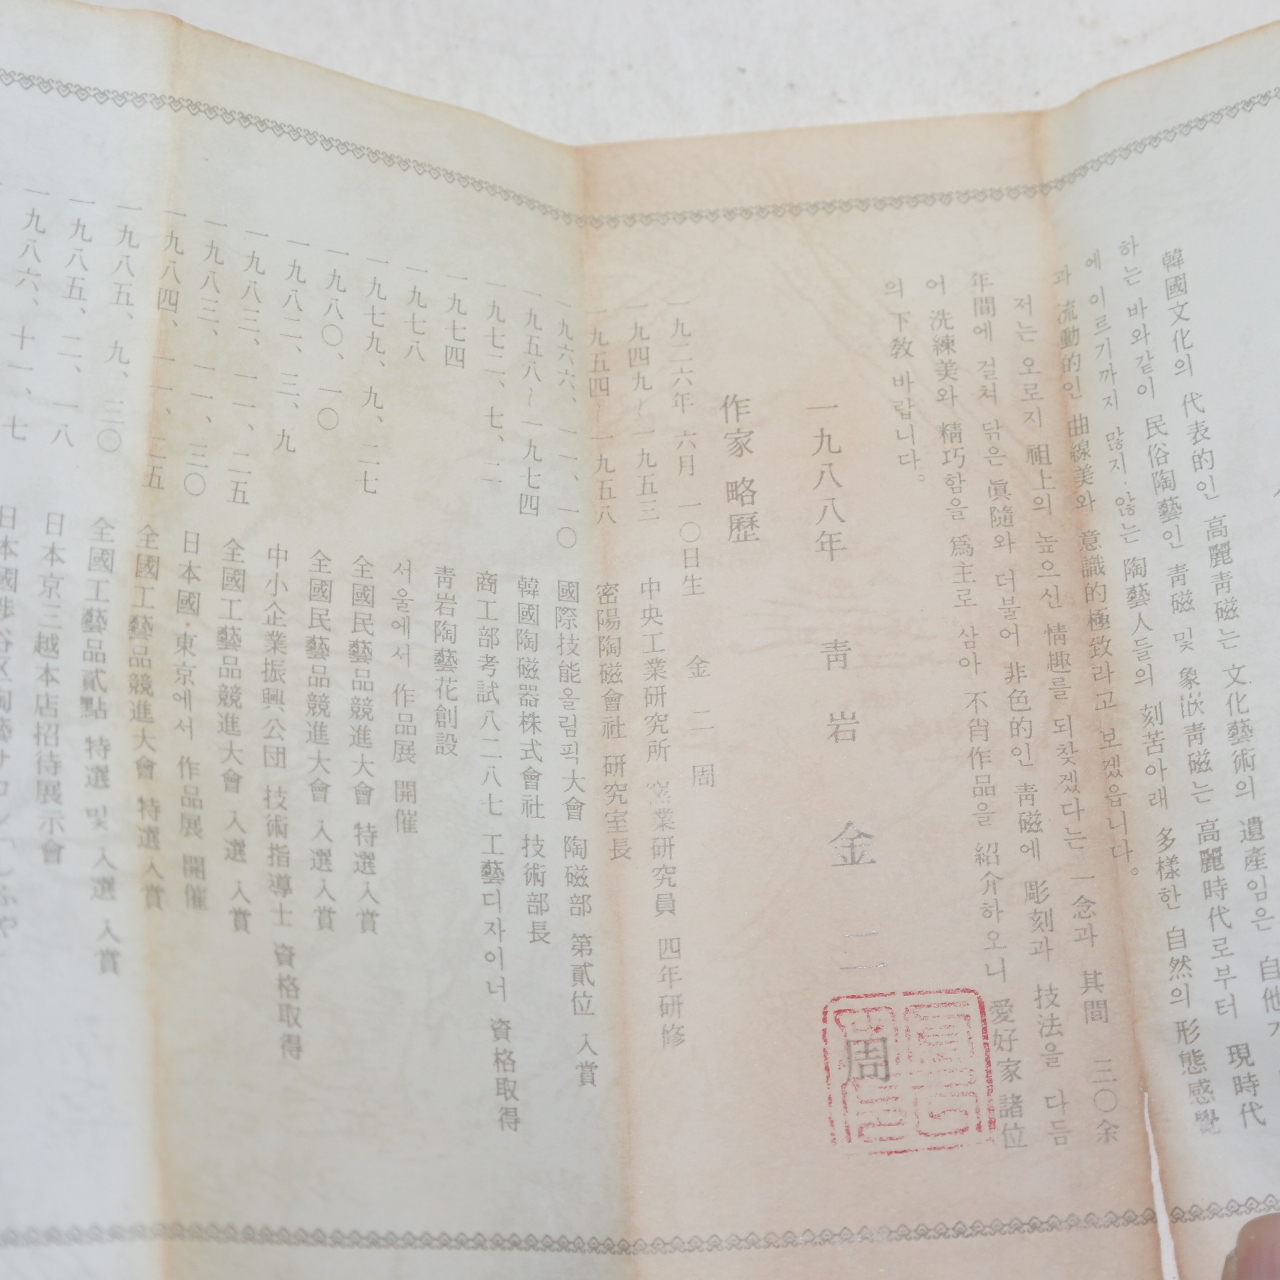 韓國文化의 代表的인 高麗靑磁는 文化藝術의 遺産임은 自他가
하는 바와같이 民俗陶藝인 靑磁 및 象嵌靑磁는 高麗時代로부터 現時代
에 이르기까지 많지 않는 陶藝人들의 刻苦아래 多樣한 自然의 形態感覺
과 流動的인 曲線美와 意識的極致라고 보겠읍니다。
저는 오로지 祖上의 높으신 情趣를 되찾겠다는 一念과 其間 三〇余
年間에 걸쳐 닦은 眞隨와 더불어 非色的인 靑磁에 彫刻과 技法을 다듬
어 洗練美와 精巧함을 爲主로 삼아 不肖作品을 紹介하오니 愛好家諸位
의 下敎 바랍니다。
一九八八年 靑岩 金二周
作家 略歷
一九二六年 六月 一〇日生 金二周
一九四九~一九五三 中央工業研究所 窯業研究員 四年研修
一九五四~一九五八 密陽陶磁會社 研究室長
一九六六、一一、一〇 國際技能올림픽大會 陶磁部 第貳位 入賞
一九五八~一九七四 韓國陶磁器株式會社 技術部長
一九七二、七、二 商工部考試八二八七 工藝디자이너 資格取得
一九七四 靑岩陶藝花創設
一九七八 서울에서 作品展 開催
一九七九、九、二七 全國民藝品競進大會 特選入賞
一九八〇、一〇 全國民藝品競進大會 入選入賞
一九八二、三、九 中小企業振興公団 技術指導士 資格取得
一九八三、一一、二五 全國工藝品競進大會 入選 入賞
一九八三、一一、三〇 日本國·東京에서 作品展 開催
一九八四、一一、二五 全國工藝品競進大會 特選入賞
一九八五、九、三〇 全國工藝品貳點 特選 및 入選 入賞
一九八五、二、一八 日本京三越本店招待展示會
一九八六、十一、七 日本國渋谷区陶藝サロン「しぶや